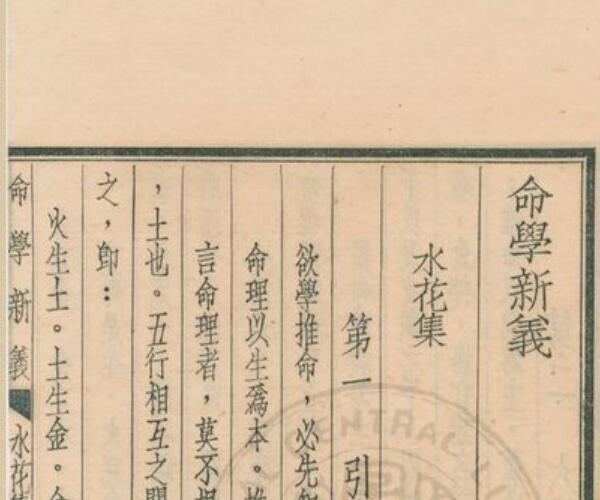 命學新義
水花集
第一 引
欲學推命,必先
命理以生爲本。
言命理者,莫不
,土也。五行相互之
之,卽:
火生土。土生金。
命學新義 水花
CENTRAL